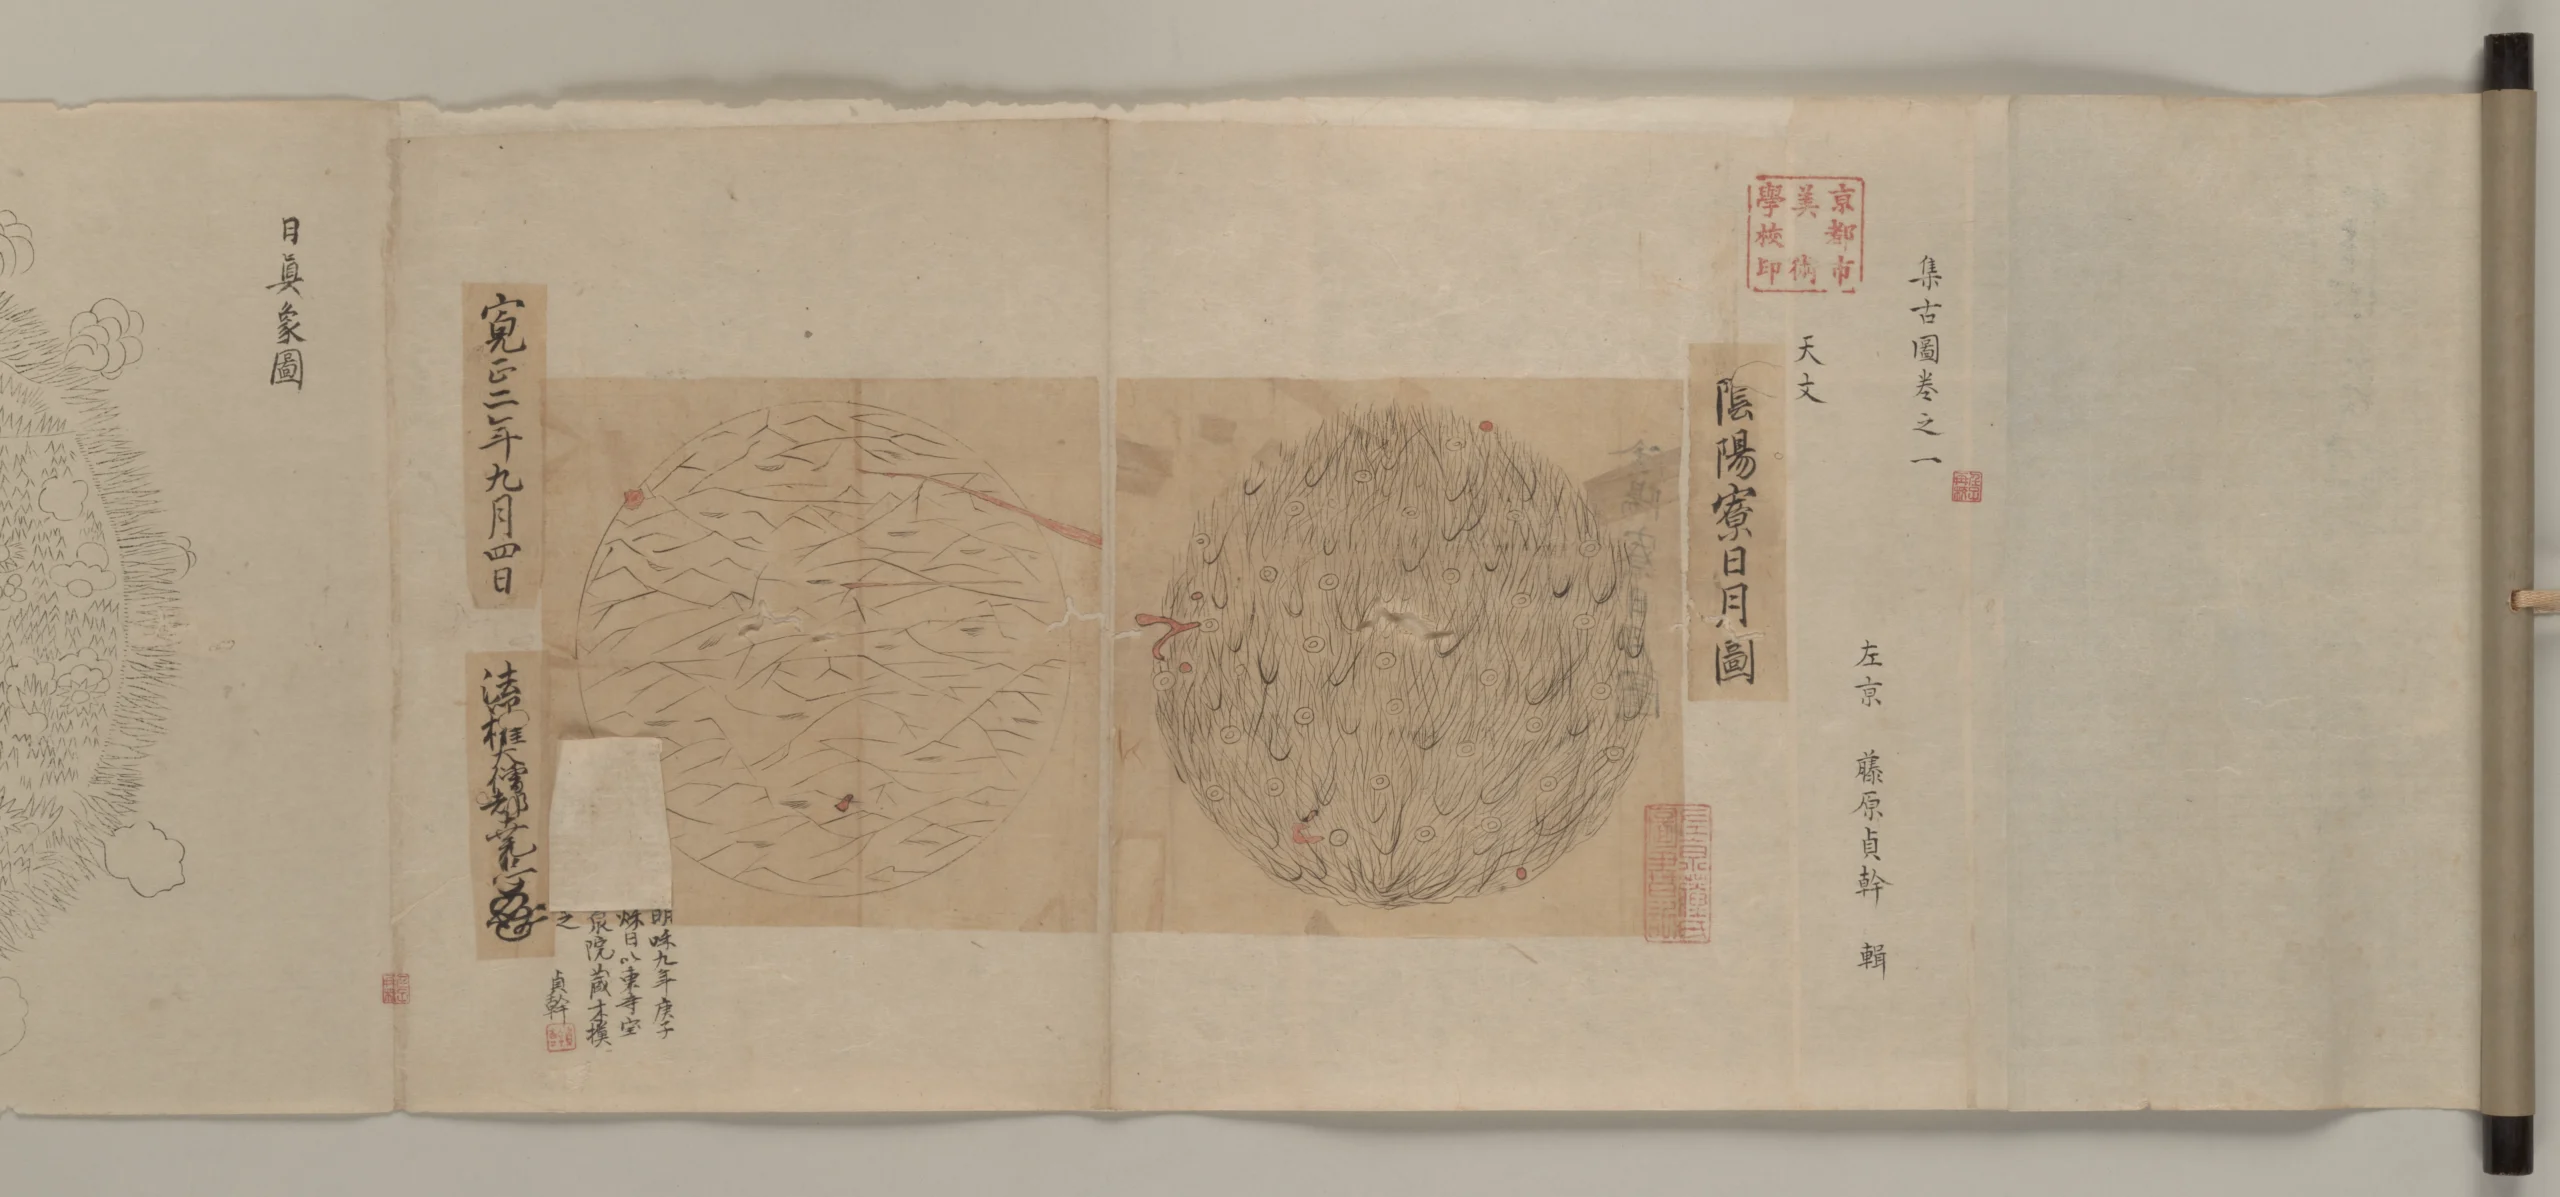 集古圖巻之一
左京 藤原貞幹 輯
京都市
美術
學校印
天文
陰陽寮日月圖
明咊九年庚子
咊日以東寺宝
泉院蔵本摸
之
貞幹
寛正二年九月四日
日眞象圖